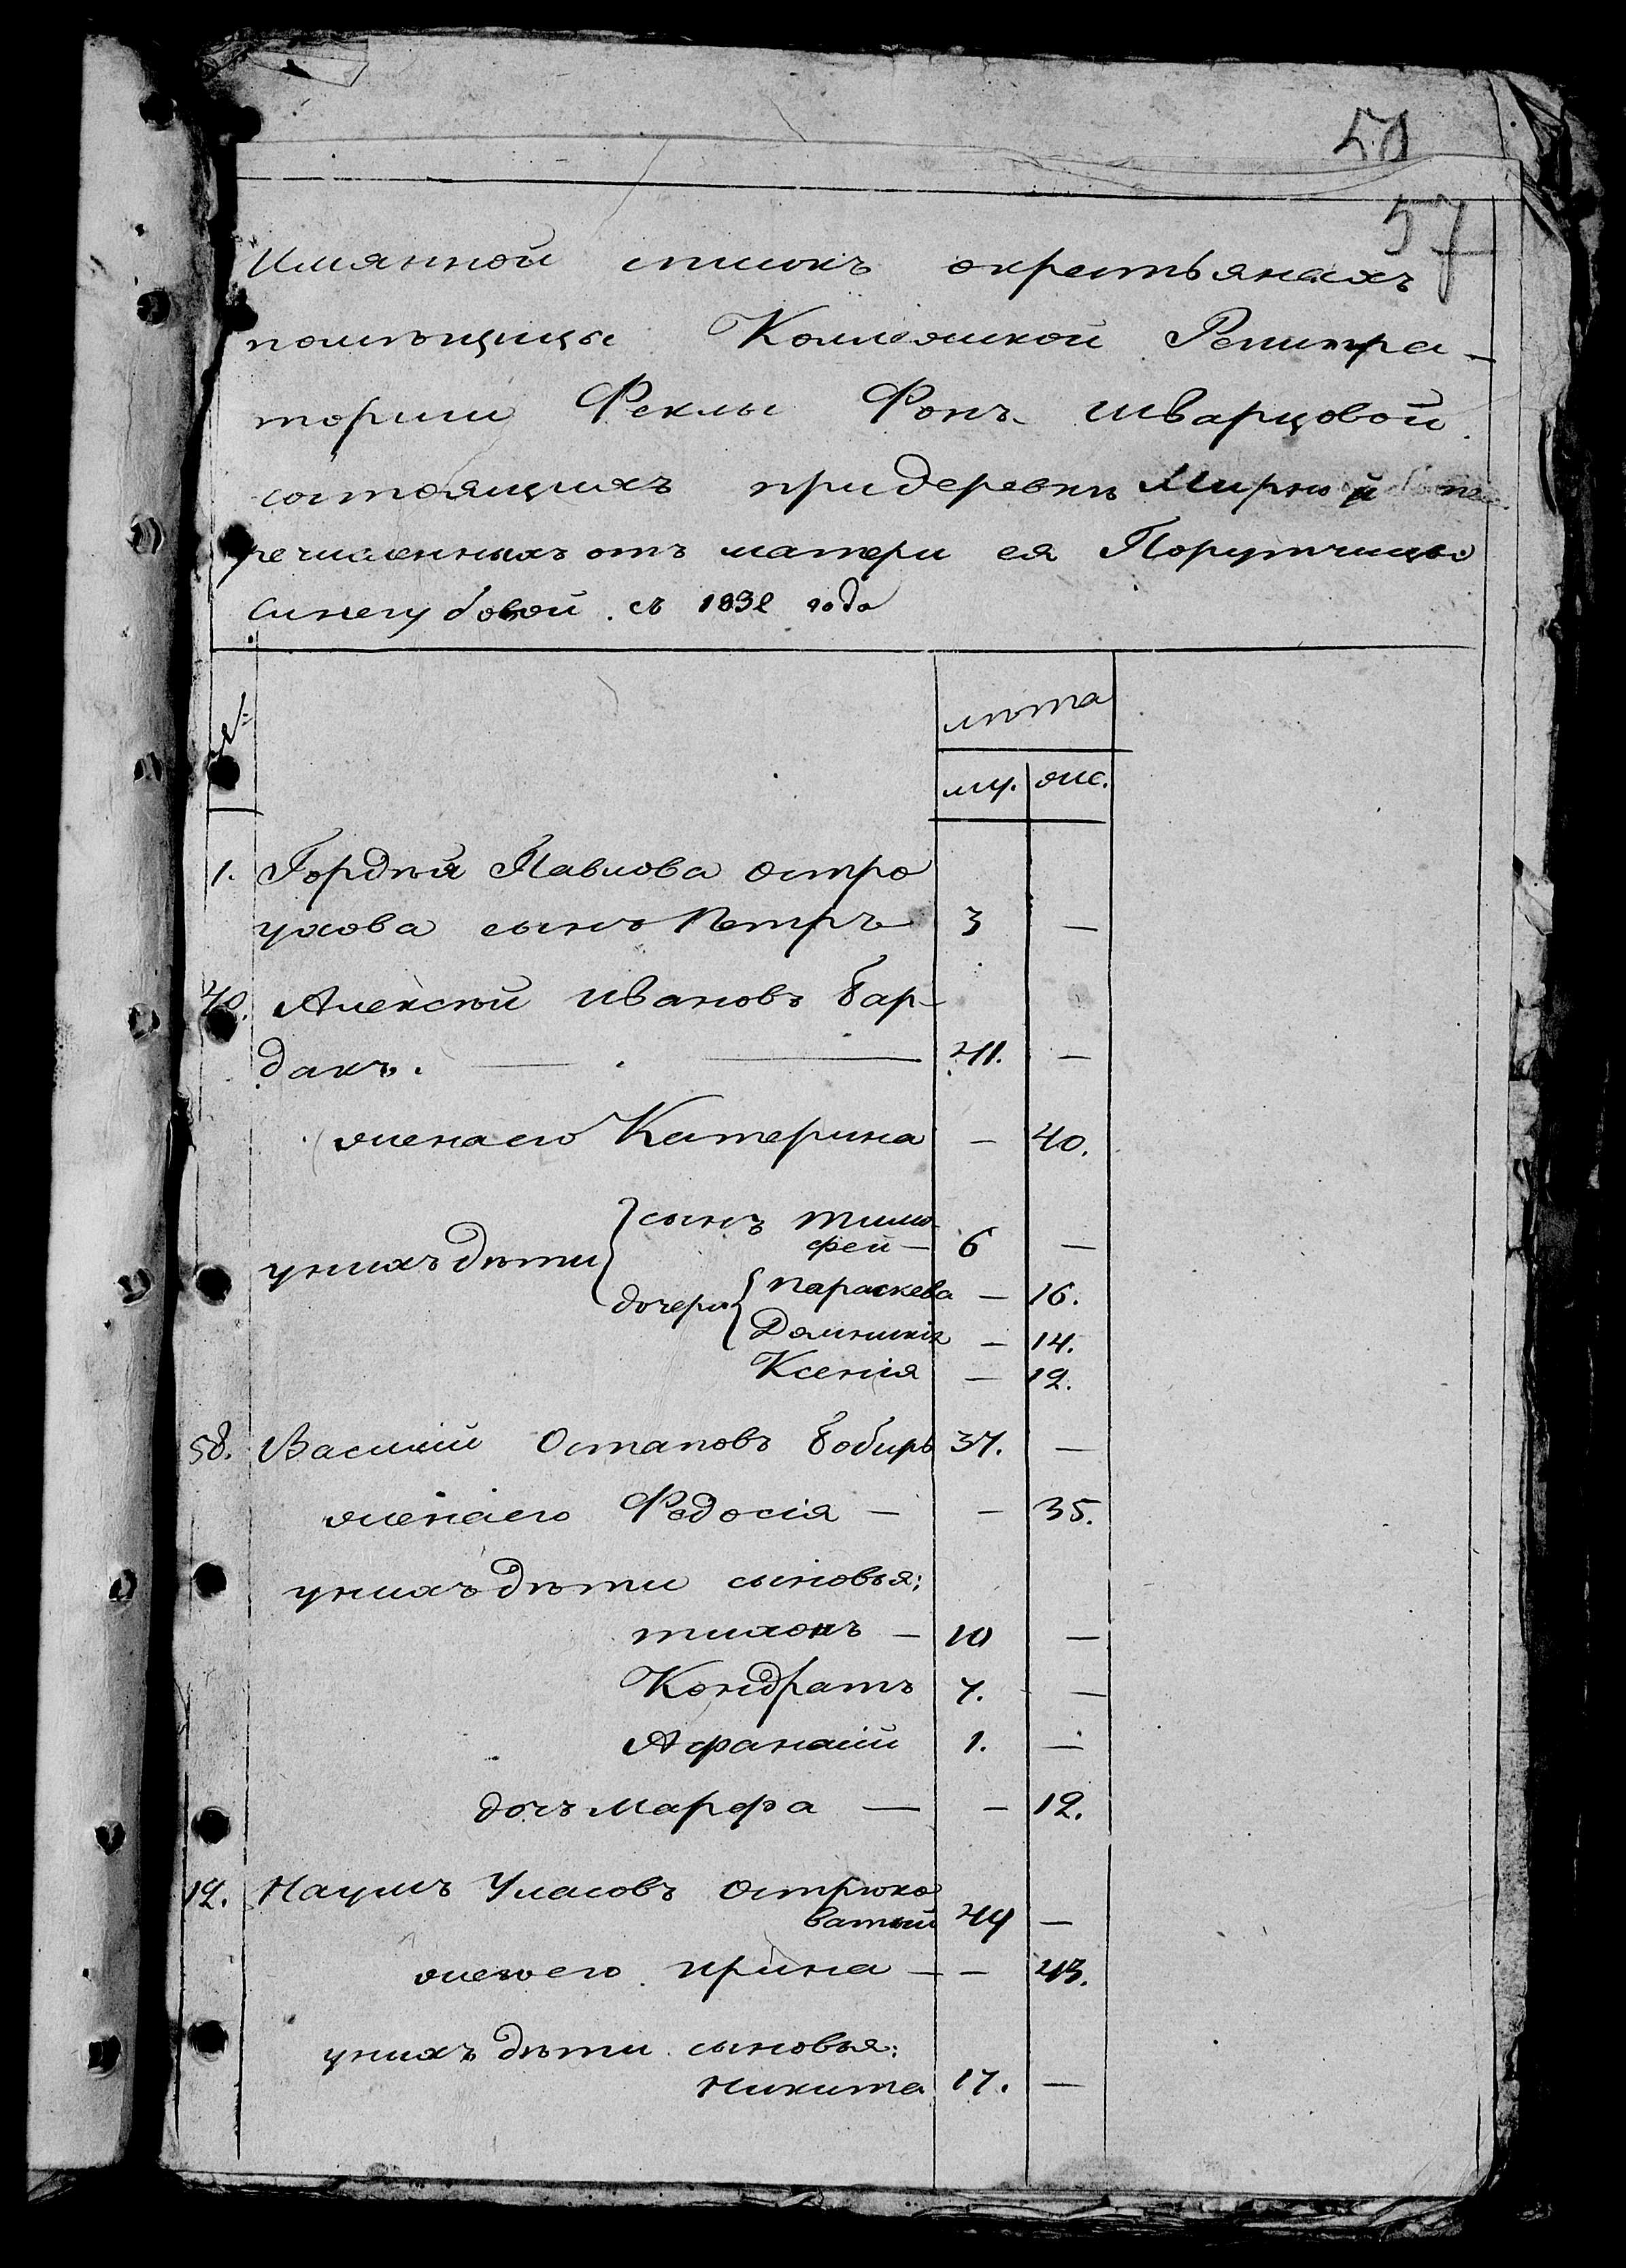 50
57
Имянной списокъ окрестьянахъ
помѣщицы Коллежской Регистра-
торши Феклы Фонъ Шварцовой
состоящихъ придеревни Мирной
речисленныхъ отъ матери ея Порутчицы
Синегубовой. съ 1832 года
№
лѣта
му. же.
1. Гордѣя Павлова Остро
ухова сынъ Петръ 3 —
40. Алексѣй Ивановъ Бар-
дакъ. — 41. —
женаего Катерина — 40.
унихъ дѣти сынъ Тимо-
фей — 6 —
дочери Параскева — 16.
Домникія — 14.
Ксенія — 12.
58. Василій Остаповъ Бобирь 37. —
женаего Федосія — — 35.
унихъ дѣти сыновья:
Тихонъ — 10 —
Кондратъ 7. —
Афанасій 1. —
дочь Марфа — — 12.
12. Наумъ Уласовъ Острюко
ватый 44 —
женаего Ирина — — 43.
унихъ дѣти сыновья:
Никита 17. —